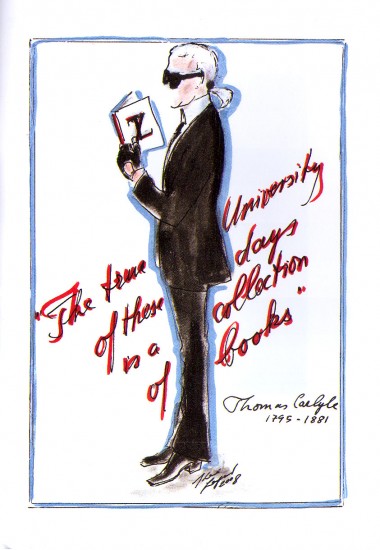 Z
"The true University
of these days
is a collection
of books"
Thomas Carlyle
1795 - 1881